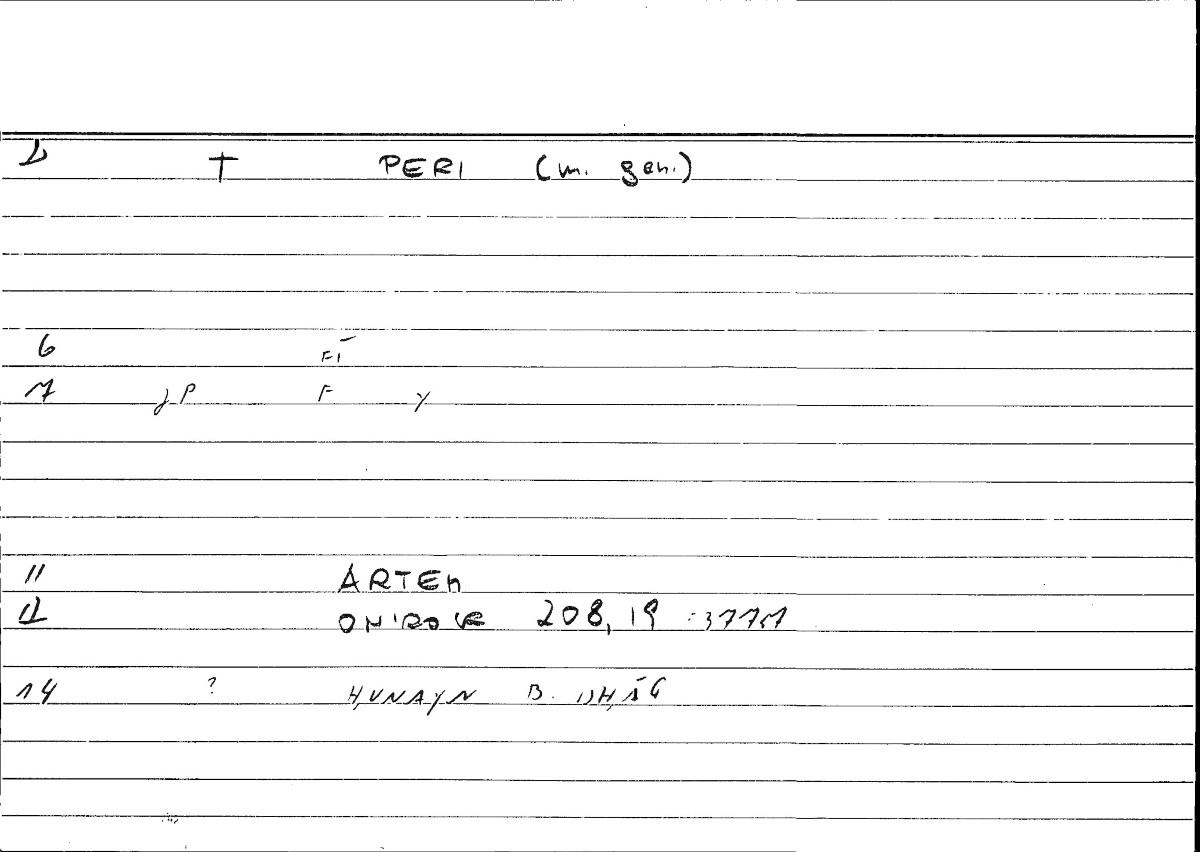 2 † PERI (m. gen.)
6 FĪ
7 F y
11 ARTEM
12 ONIROCR 208,19
14 ? ḤUNAYN B. ISḤĀQ